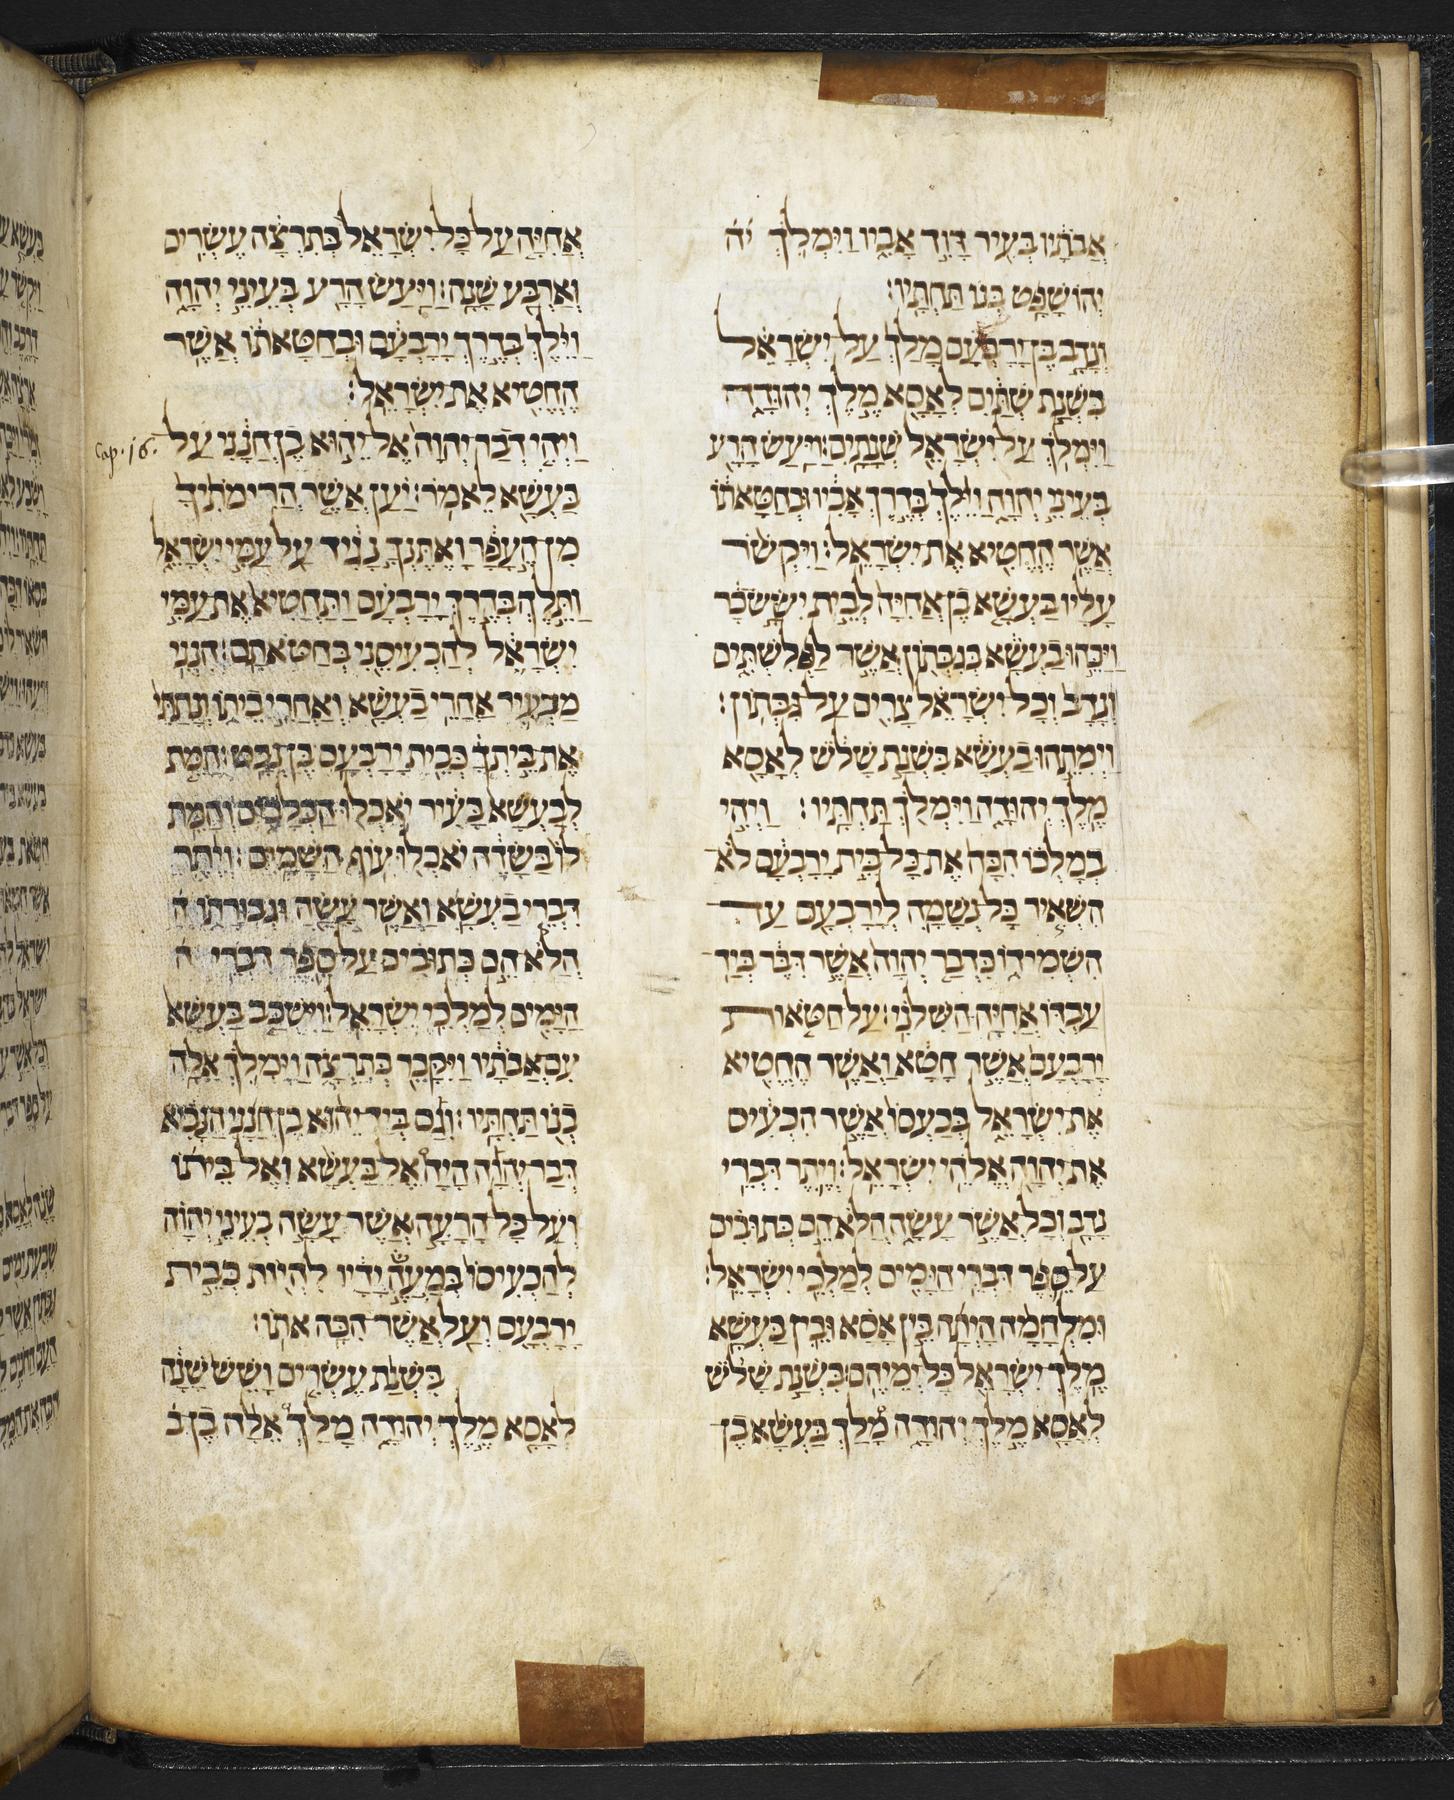 אֲבֹתָיו בְּעִיר דָּוִד אָבִיו וַיִּמְלֹךְ יה
יְהוֹשָׁפָט בְּנוֹ תַּחְתָּיו׃
וְנָדָב בֶּן יָרָבְעָם מָלַךְ עַל יִשְׂרָאֵל
בִּשְׁנַת שְׁתַּיִם לְאָסָא מֶלֶךְ יְהוּדָה
וַיִּמְלֹךְ עַל יִשְׂרָאֵל שְׁנָתָיִם׃ וַיַּעַשׂ הָרַע
בְּעֵינֵי יְהוָה וַיֵּלֶךְ בְּדֶרֶךְ אָבִיו וּבְחַטָּאתוֹ
אֲשֶׁר הֶחֱטִיא אֶת יִשְׂרָאֵל׃ וַיִּקְשֹׁר
עָלָיו בַּעְשָׁא בֶן אֲחִיָּה לְבֵית יִשָּׂשכָר
וַיַּכֵּהוּ בַעְשָׁא בְּגִבְּתוֹן אֲשֶׁר לַפְּלִשְׁתִּים
וְנָדָב וְכָל יִשְׂרָאֵל צָרִים עַל גִּבְּתוֹן׃
וַיְמִתֵהוּ בַעְשָׁא בִּשְׁנַת שָׁלֹשׁ לְאָסָא
מֶלֶךְ יְהוּדָה וַיִּמְלֹךְ תַּחְתָּיו׃ וַיְהִי
בְמָלְכוֹ הִכָּה אֶת כָּל בֵּית יָרָבְעָם לֹא
הִשְׁאִיר כָּל נְשָׁמָה לְיָרָבְעָם עַד
הִשְׁמִידוֹ כִּדְבַר יְהוָה אֲשֶׁר דִּבֶּר בְּיַד
עַבְדּוֹ אֲחִיָּה הַשִּׁלֹנִי׃ עַל חַטֹּאות
יָרָבְעָם אֲשֶׁר חָטָא וַאֲשֶׁר הֶחֱטִיא
אֶת יִשְׂרָאֵל בְּכַעְסוֹ אֲשֶׁר הִכְעִיס
אֶת יְהוָה אֱלֹהֵי יִשְׂרָאֵל׃ וְיֶתֶר דִּבְרֵי
נָדָב וְכָל אֲשֶׁר עָשָׂה הֲלֹא הֵם כְּתוּבִים
עַל סֵפֶר דִּבְרֵי הַיָּמִים לְמַלְכֵי יִשְׂרָאֵל׃
וּמִלְחָמָה הָיְתָה בֵּין אָסָא וּבֵין בַּעְשָׁא
מֶלֶךְ יִשְׂרָאֵל כָּל יְמֵיהֶם׃ בִּשְׁנַת שָׁלֹשׁ
לְאָסָא מֶלֶךְ יְהוּדָה מָלַךְ בַּעְשָׁא בֶן
אֲחִיָּה עַל כָּל יִשְׂרָאֵל בְּתִרְצָה עֶשְׂרִים
וְאַרְבַּע שָׁנָה׃ וַיַּעַשׂ הָרַע בְּעֵינֵי יְהוָה
וַיֵּלֶךְ בְּדֶרֶךְ יָרָבְעָם וּבְחַטָּאתוֹ אֲשֶׁר
הֶחֱטִיא אֶת יִשְׂרָאֵל׃
Cap. 16.
וַיְהִי דְבַר יְהוָה אֶל יֵהוּא בֶן חֲנָנִי עַל
בַּעְשָׁא לֵאמֹר׃ יַעַן אֲשֶׁר הֲרִימֹתִיךָ
מִן הֶעָפָר וָאֶתֶּנְךָ נָגִיד עַל עַמִּי יִשְׂרָאֵל
וַתֵּלֶךְ בְּדֶרֶךְ יָרָבְעָם וַתַּחֲטִיא אֶת עַמִּי
יִשְׂרָאֵל לְהַכְעִיסֵנִי בְּחַטֹּאתָם׃ הִנְנִי
מַבְעִיר אַחֲרֵי בַעְשָׁא וְאַחֲרֵי בֵיתוֹ וְנָתַתִּי
אֶת בֵּיתְךָ כְּבֵית יָרָבְעָם בֶּן נְבָט׃ הַמֵּת
לְבַעְשָׁא בָּעִיר יֹאכְלוּ הַכְּלָבִים וְהַמֵּת
לוֹ בַּשָּׂדֶה יֹאכְלוּ עוֹף הַשָּׁמָיִם׃ וְיֶתֶר
דִּבְרֵי בַעְשָׁא וַאֲשֶׁר עָשָׂה וּגְבוּרָתוֹ ה
הֲלֹא הֵם כְּתוּבִים עַל סֵפֶר דִּבְרֵי ה
הַיָּמִים לְמַלְכֵי יִשְׂרָאֵל׃ וַיִּשְׁכַּב בַּעְשָׁא
עִם אֲבֹתָיו וַיִּקָּבֵר בְּתִרְצָה וַיִּמְלֹךְ אֵלָה
בְנוֹ תַּחְתָּיו׃ וְגַם בְּיַד יֵהוּא בֶן חֲנָנִי הַנָּבִיא
דְּבַר יְהוָה הָיָה אֶל בַּעְשָׁא וְאֶל בֵּיתוֹ
וְעַל כָּל הָרָעָה אֲשֶׁר עָשָׂה בְעֵינֵי יְהוָה
לְהַכְעִיסוֹ בְּמַעֲשֵׂה יָדָיו לִהְיוֹת כְּבֵית
יָרָבְעָם וְעַל אֲשֶׁר הִכָּה אֹתוֹ׃
בִּשְׁנַת עֶשְׂרִים וָשֵׁשׁ שָׁנָה
לְאָסָא מֶלֶךְ יְהוּדָה מָלַךְ אֵלָה בֶן ב